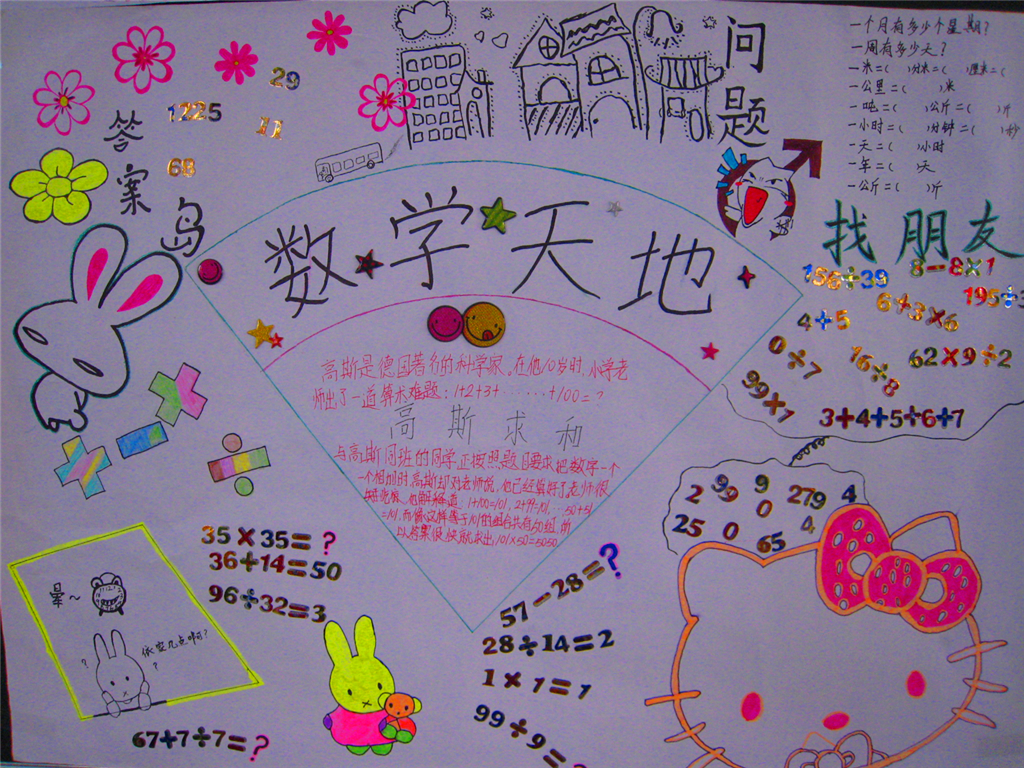 问题
一个月有多少个星期？
一周有多少天？
一米=( )分米=( )厘米=(
一公里=( )米
一吨=( )公斤=( )斤
一小时=( )分钟=( )秒
一天=( )小时
一年=( )天
一公斤=( )斤
答案岛
29
1225
11
68
数学天地
找朋友
156÷39
8-8×1
6÷3×6
195÷
4+5
0÷7
16÷8
62×9÷2
99×1
3+4+5÷6÷7
高斯是德国著名的科学家。在他10岁时，小学老
师出了一道算术难题：1+2+3+……+100=？
高斯求和
与高斯同班的同学正按照题目要求把数字一个
一个相加时，高斯却对老师说，他已经算好了老师很
他解释道：1+100=101，2+99=101，…50+51
=101，而像这样等于101的组合共有50组，所
以答案很快就求出，101×50=5050
2 9 9 279 4
25 0 0 4
65
35×35=？
36+14=50
96÷32=3
57-28=？
28÷14=2
1×1=1
99÷9=
67+7÷7=？
晕~
？
依安几点啊？
？